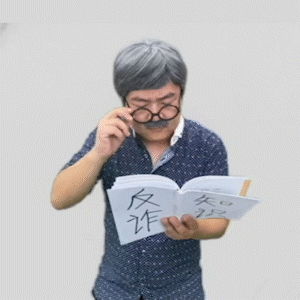 反诈
知识